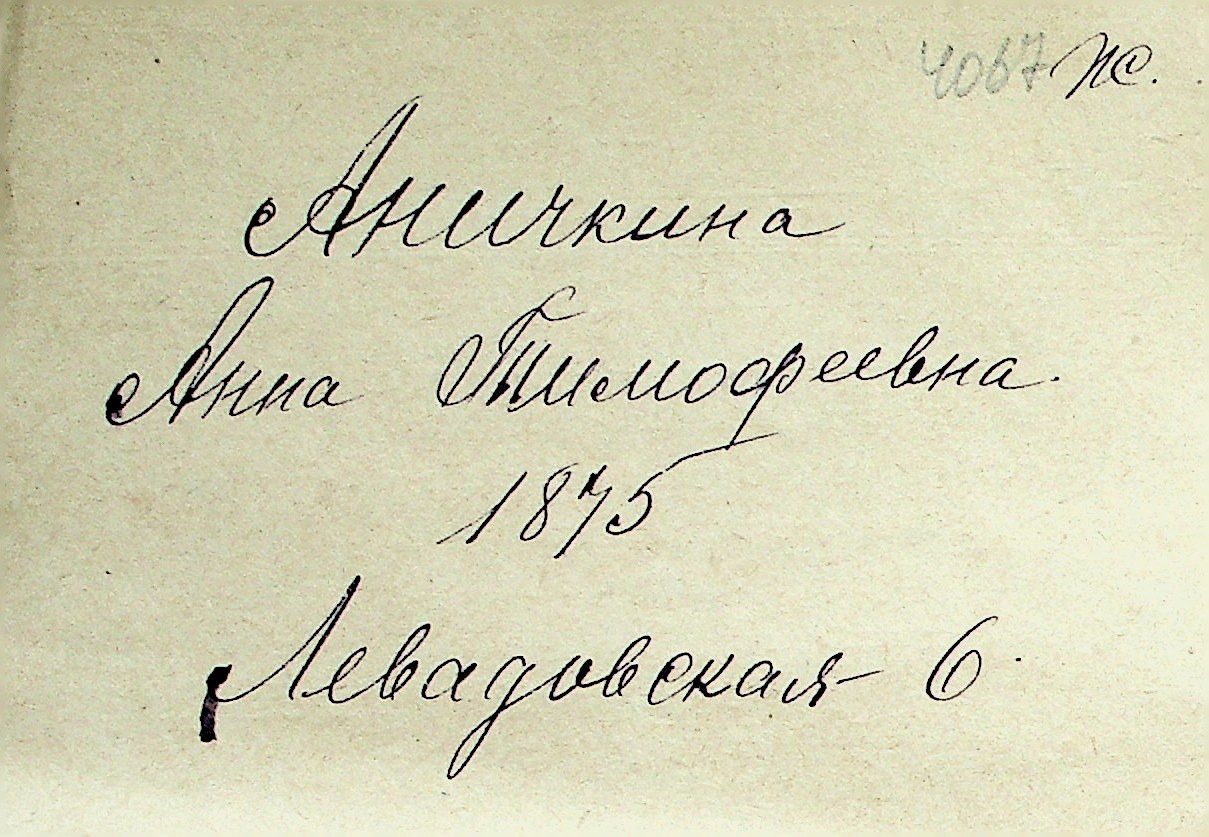 4067 ж.
Аничкина
Анна Тимофеевна.
1875
Левадовская 6.